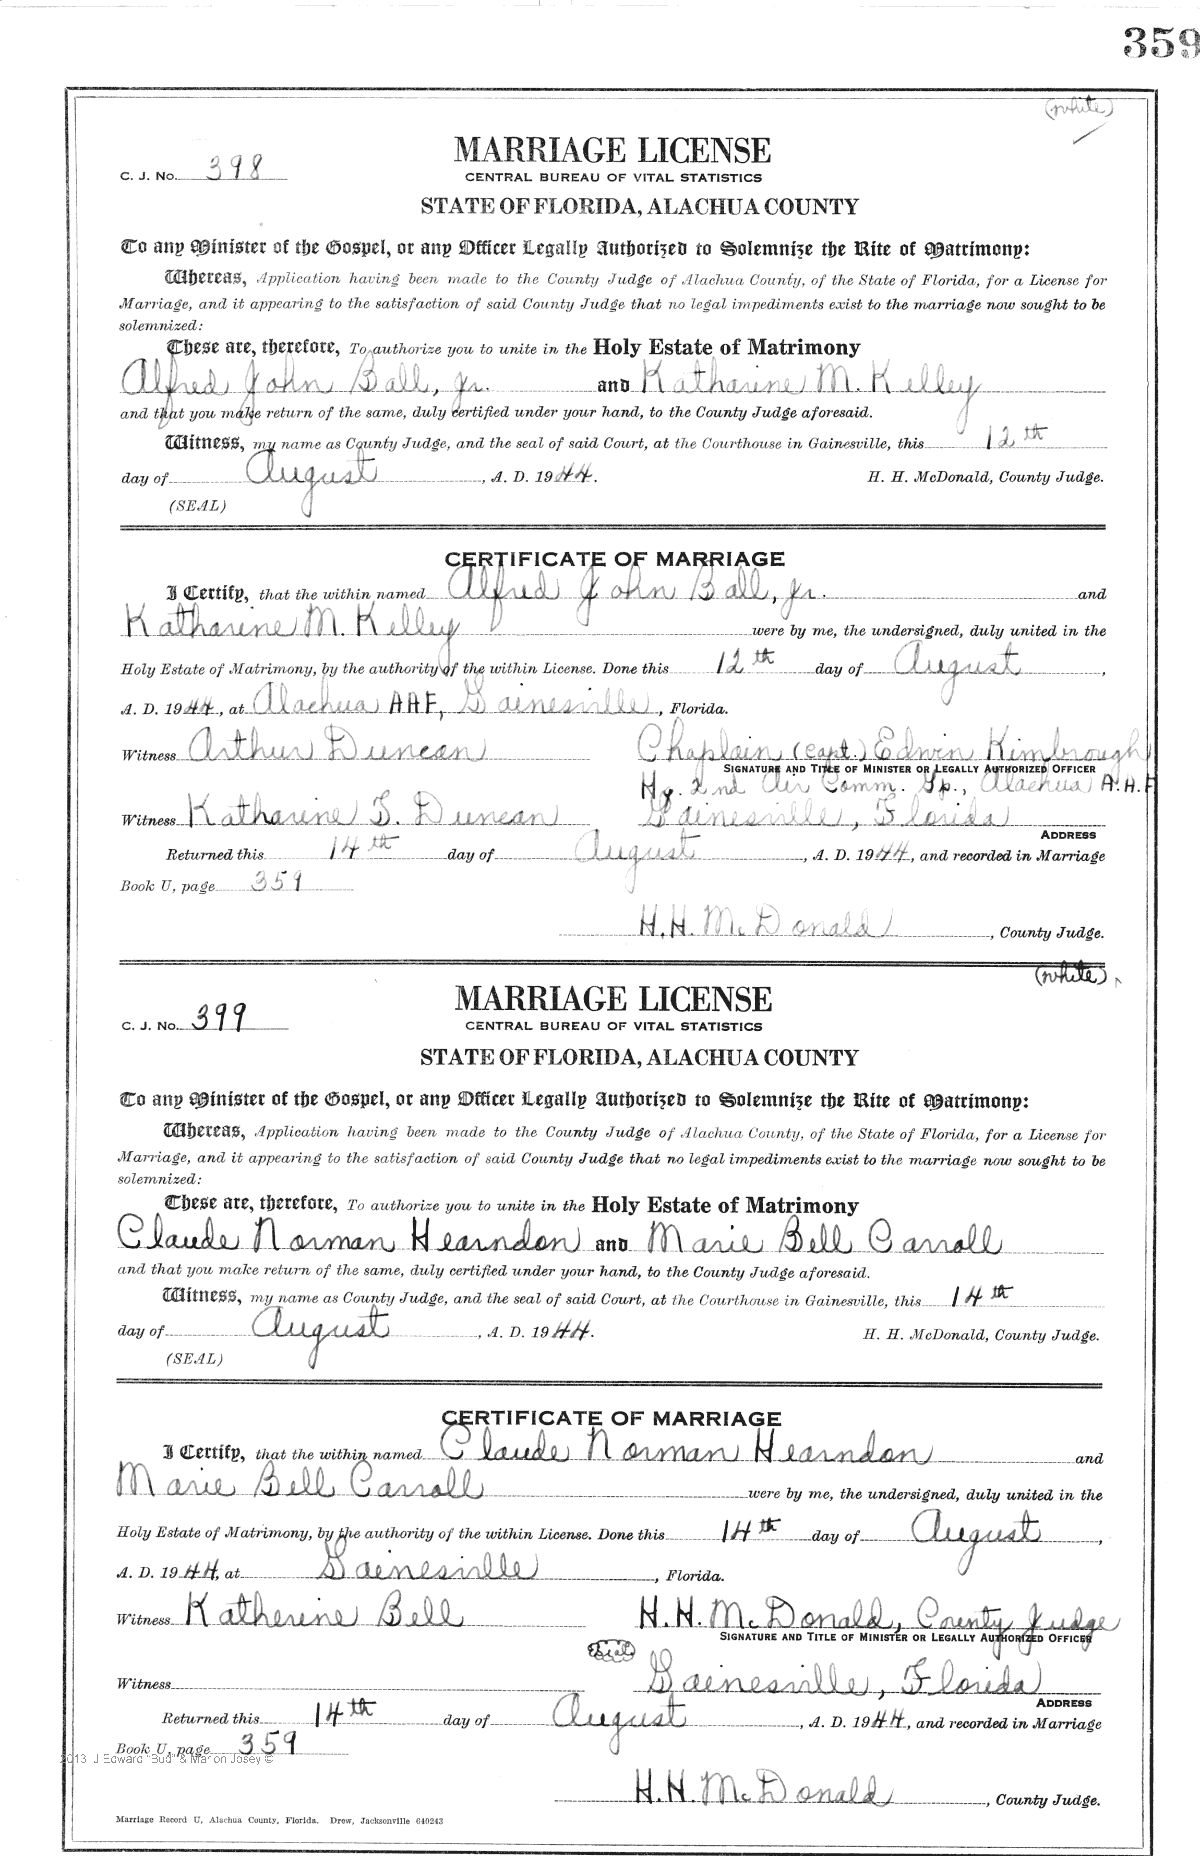 359
(white)
MARRIAGE LICENSE
C. J. No. 398
CENTRAL BUREAU OF VITAL STATISTICS
STATE OF FLORIDA, ALACHUA COUNTY
To any Minister of the Gospel, or any Officer Legally Authorized to Solemnize the Rite of Matrimony:
Whereas, Application having been made to the County Judge of Alachua County, of the State of Florida, for a License for
Marriage, and it appearing to the satisfaction of said County Judge that no legal impediments exist to the marriage now sought to be
solemnized:
These are, therefore, To authorize you to unite in the Holy Estate of Matrimony
Alfred John Ball, Jr. and Katharine M. Kelley
and that you make return of the same, duly certified under your hand, to the County Judge aforesaid.
Witness, my name as County Judge, and the seal of said Court, at the Courthouse in Gainesville, this 12th
day of August, A. D. 1944. H. H. McDonald, County Judge.
(SEAL)
CERTIFICATE OF MARRIAGE
I Certify, that the within named Alfred John Ball, Jr. and
Katharine M. Kelley were by me, the undersigned, duly united in the
Holy Estate of Matrimony, by the authority of the within License. Done this 12th day of August,
A. D. 1944, at Alachua AAF, Gainesville, Florida.
Witness Arthur Duncan Chaplain (Capt.) Edwin Kimbrough
SIGNATURE AND TITLE OF MINISTER OR LEGALLY AUTHORIZED OFFICER
Hq. 2nd Air Comm. Gp., Alachua A.A.F
Witness Katharine S. Duncan Gainesville, Florida
ADDRESS
Returned this 14th day of August, A. D. 1944, and recorded in Marriage
Book U, page 359
H.H. McDonald, County Judge.
(white)
MARRIAGE LICENSE
C. J. No. 399
CENTRAL BUREAU OF VITAL STATISTICS
STATE OF FLORIDA, ALACHUA COUNTY
To any Minister of the Gospel, or any Officer Legally Authorized to Solemnize the Rite of Matrimony:
Whereas, Application having been made to the County Judge of Alachua County, of the State of Florida, for a License for
Marriage, and it appearing to the satisfaction of said County Judge that no legal impediments exist to the marriage now sought to be
solemnized:
These are, therefore, To authorize you to unite in the Holy Estate of Matrimony
Claude Norman Hearndon and Marie Bell Carroll
and that you make return of the same, duly certified under your hand, to the County Judge aforesaid.
Witness, my name as County Judge, and the seal of said Court, at the Courthouse in Gainesville, this 14th
day of August, A. D. 1944. H. H. McDonald, County Judge.
(SEAL)
CERTIFICATE OF MARRIAGE
I Certify, that the within named Claude Norman Hearndon and
Marie Bell Carroll were by me, the undersigned, duly united in the
Holy Estate of Matrimony, by the authority of the within License. Done this 14th day of August,
A. D. 1944, at Gainesville, Florida.
Witness Katherine Bell H.H. McDonald, County Judge
SIGNATURE AND TITLE OF MINISTER OR LEGALLY AUTHORIZED OFFICER
(Seal)
Witness Gainesville, Florida
ADDRESS
Returned this 14th day of August, A. D. 1944, and recorded in Marriage
Book U, page 359
2013 J Edward "Bud" & Marion Josey ©
H.H. McDonald, County Judge.
Marriage Record U, Alachua County, Florida. Drew, Jacksonville 640243